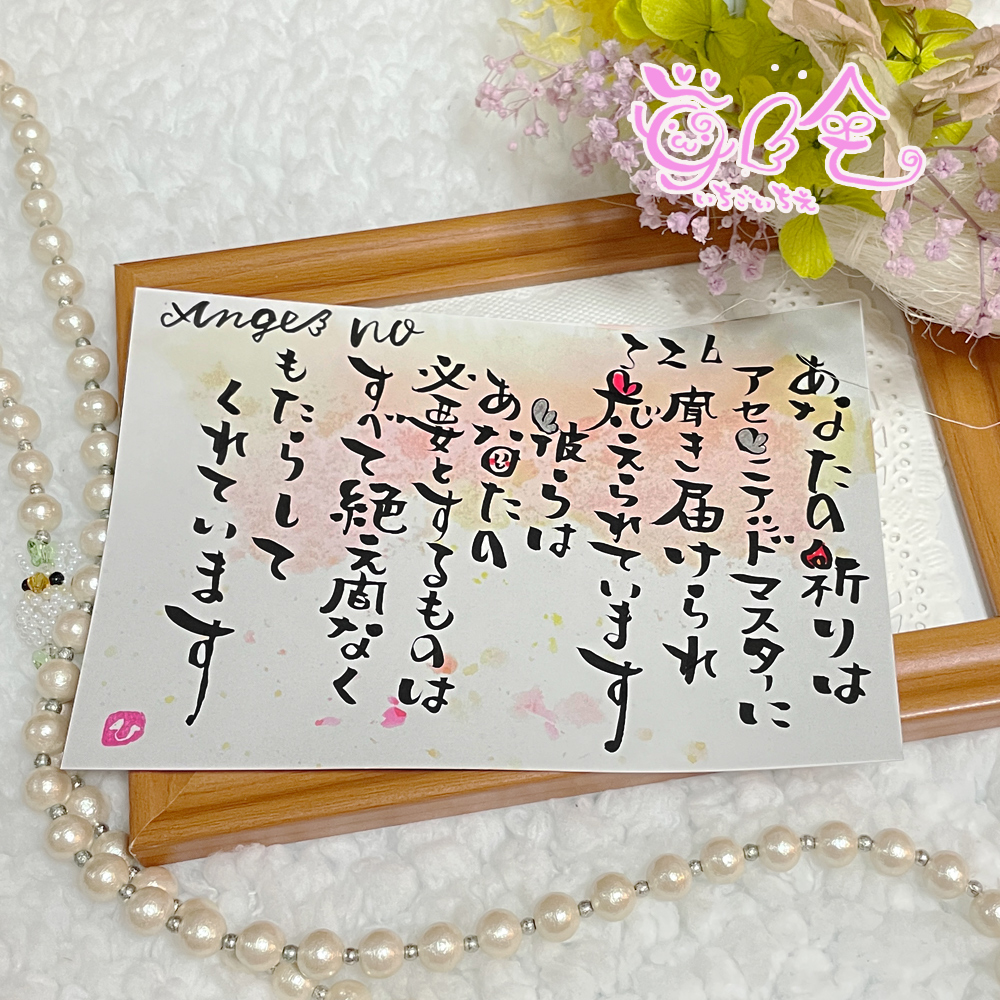 いちごいちえ
Angel no
あなたの祈りは
アセンデッドマスターに
聞き届けられ
応えられています
彼らは
あなたの
必要とするものは
すべて絶え間なく
もたらして
くれています